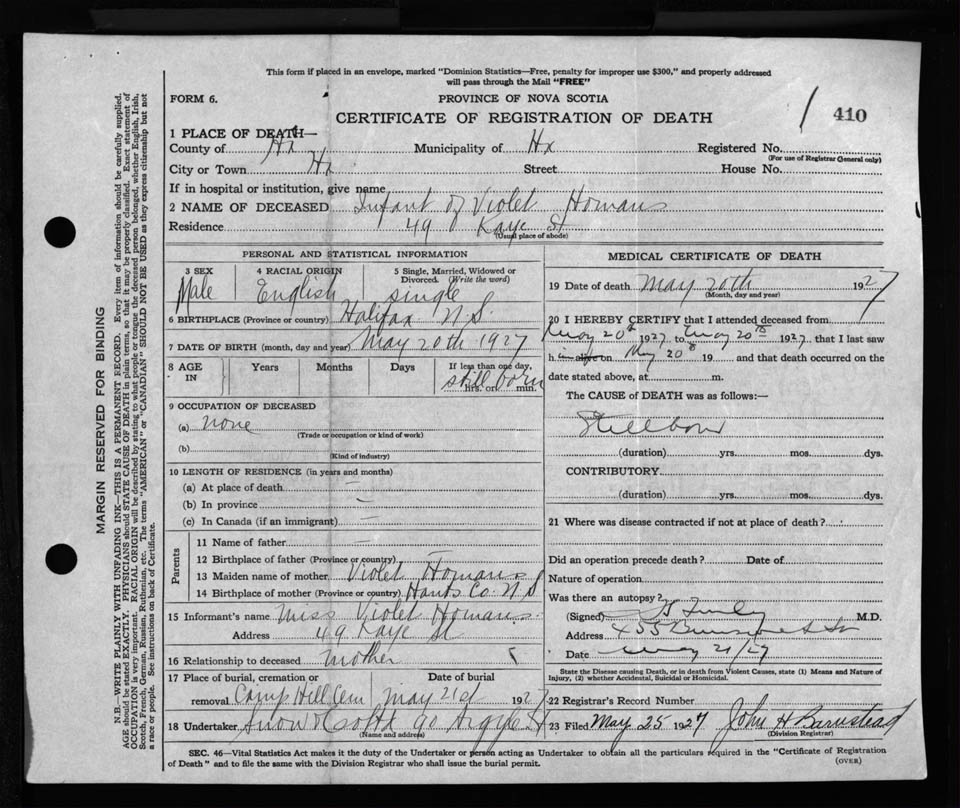 This form if placed in an envelope, marked "Dominion Statistics—Free, penalty for improper use $300," and properly addressed
will pass through the Mail "FREE"
FORM 6.
PROVINCE OF NOVA SCOTIA
CERTIFICATE OF REGISTRATION OF DEATH
410
1 PLACE OF DEATH—
County of Hx Municipality of Hx Registered No.
(For use of Registrar General only)
City or Town Hx Street House No.
If in hospital or institution, give name
2 NAME OF DECEASED Infant of Violet Homans
Residence 49 Kaye St
(Usual place of abode)
PERSONAL AND STATISTICAL INFORMATION
3 SEX 4 RACIAL ORIGIN 5 Single, Married, Widowed or
Divorced. (Write the word)
Male English single
6 BIRTHPLACE (Province or country) Halifax N.S.
7 DATE OF BIRTH (month, day and year) May 20th 1927
8 AGE IN Years Months Days If less than one day,
still born
hrs. or min.
9 OCCUPATION OF DECEASED
(a) none
(Trade or occupation or kind of work)
(b)
(Kind of industry)
10 LENGTH OF RESIDENCE (in years and months)
(a) At place of death —
(b) In province —
(c) In Canada (if an immigrant) —
Parents
11 Name of father —
12 Birthplace of father (Province or country) —
13 Maiden name of mother Violet Homans
14 Birthplace of mother (Province or country) Hants Co. N.S
15 Informant's name Miss Violet Homans
Address 49 Kaye St
16 Relationship to deceased mother
17 Place of burial, cremation or Date of burial
removal Camp Hill Cem May 21st 1927
18 Undertaker Snow & Co Ltd 90 Argyle St
(Name and address)
MEDICAL CERTIFICATE OF DEATH
19 Date of death May 20th 1927
(Month, day and year)
20 I HEREBY CERTIFY that I attended deceased from
May 20th 1927 to May 20th 1927, that I last saw
h im alive on May 20th 19 and that death occurred on the
date stated above, at m.
The CAUSE of DEATH was as follows:—
Stillborn
(duration) yrs. mos. dys.
CONTRIBUTORY
(duration) yrs. mos. dys.
21 Where was disease contracted if not at place of death?
Did an operation precede death? Date of
Nature of operation
Was there an autopsy?
(Signed) M.D.
Address 455
Date May 21/27
State the Disease causing Death, or in death from Violent Causes, state (1) Means and Nature of
Injury, (2) whether Accidental, Suicidal or Homicidal.
22 Registrar's Record Number
23 Filed May 25 1927 John H Barnstead
(Division Registrar)
SEC. 46—Vital Statistics Act makes it the duty of the Undertaker or person acting as Undertaker to obtain all the particulars required in the "Certificate of Registration
of Death" and to file the same with the Division Registrar who shall issue the burial permit.
(OVER)
MARGIN RESERVED FOR BINDING
N.B.—WRITE PLAINLY WITH UNFADING INK—THIS IS A PERMANENT RECORD. Every item of information should be carefully supplied.
AGE should be stated EXACTLY. PHYSICIANS should STATE CAUSE OF DEATH in plain terms, so that it may be properly classified. Exact statement of
OCCUPATION is very important. RACIAL ORIGIN will be described by stating to what people or tongue the deceased person belonged, whether English, Irish,
Scotch, French, German, Russian, Ruthenian, etc. The terms "AMERICAN" or "CANADIAN" SHOULD NOT BE USED as they express citizenship but not
a race or people. See instructions on back of Certificate.